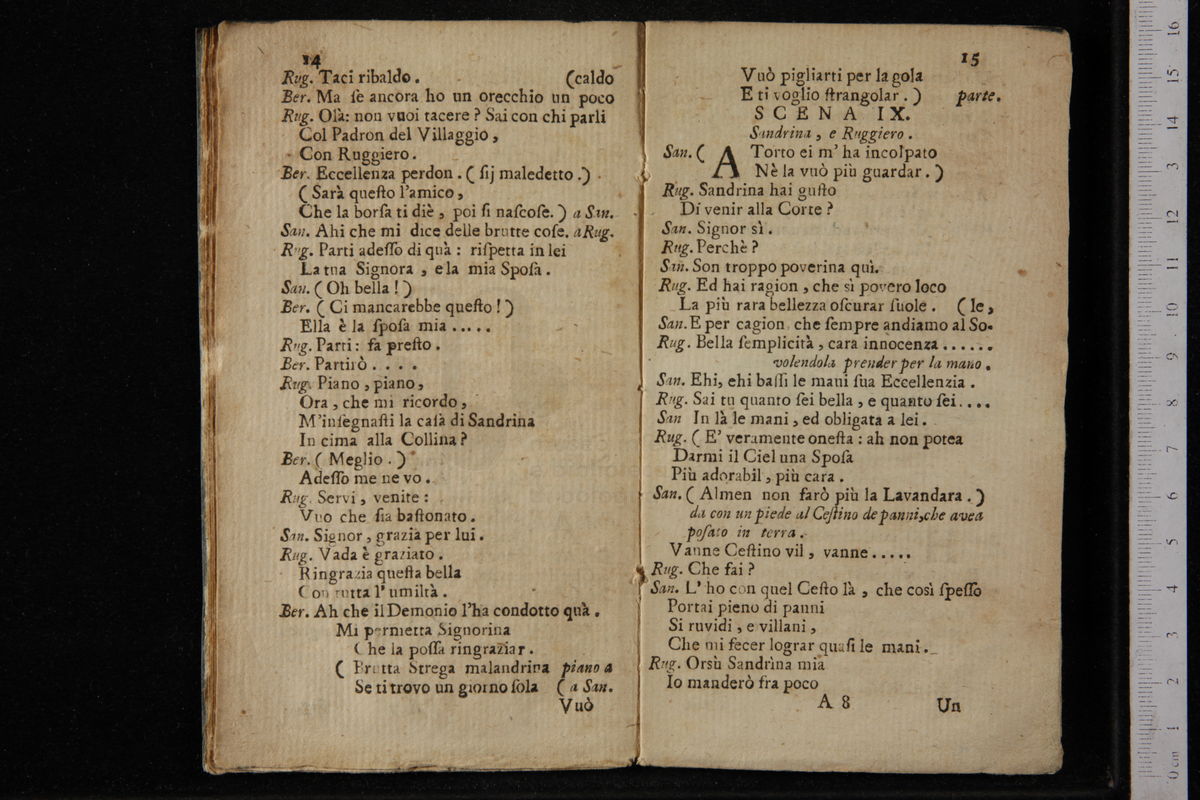 14
Rug. Taci ribaldo. (caldo
Ber. Ma ſe ancora ho un orecchio un poco
Rug. Olà: non vuoi tacere? Sai con chi parli
Col Padron del Villaggio,
Con Ruggiero.
Ber. Eccellenza perdon. (ſij maledetto.)
(Sarà queſto l'amico,
Che la borſa ti diè, poi ſi naſcoſe.) a San.
San. Ahi che mi dice delle brutte coſe. a Rug.
Rug. Parti adeſſo di quà: riſpetta in lei
La tua Signora, e la mia Spoſa.
San. (Oh bella!)
Ber. (Ci mancarebbe queſto!)
Ella è la ſpoſa mia.....
Rug. Parti: fa preſto.
Ber. Partirò....
Rug. Piano, piano,
Ora, che mi ricordo,
M'inſegnaſti la caſa di Sandrina
In cima alla Collina?
Ber. (Meglio.)
Adeſſo me ne vo.
Rug. Servi, venite:
Vuo che ſia baſtonato.
San. Signor, grazia per lui.
Rug. Vada è graziato.
Ringrazia queſta bella
Con tutta l'umiltà.
Ber. Ah che il Demonio l'ha condotto quà.
Mi permetta Signorina
Che la poſſa ringraziar.
(Brutta Strega malandrina piano a
Se ti trovo un giorno ſola (a San.
Vuò
15
Vuò pigliarti per la gola
E ti voglio ſtrangolar.) parte.
SCENA IX.
Sandrina, e Ruggiero.
San. (A Torto ei m'ha incolpato
Nè la vuò più guardar.)
Rug. Sandrina hai guſto
Di venir alla Corte?
San. Signor sì.
Rug. Perchè?
San. Son troppo poverina quì.
Rug. Ed hai ragion, che sì povero loco
La più rara bellezza oſcurar ſuole. (le,
San. E per cagion che ſempre andiamo al So-
Rug. Bella ſemplicità, cara innocenza......
volendola prender per la mano.
San. Ehi, ehi baſſi le mani ſua Eccellenzia.
Rug. Sai tu quanto ſei bella, e quanto ſei....
San In là le mani, ed obligata a lei.
Rug. (E' veramente oneſta: ah non potea
Darmi il Ciel una Spoſa
Più adorabil, più cara.
San. (Almen non farò più la Lavandara.)
da con un piede al Ceſtino de panni, che avea
poſato in terra.
Vanne Ceſtino vil, vanne.....
Rug. Che fai?
San. L'ho con quel Ceſto là, che così ſpeſſo
Portai pieno di panni
Si ruvidi, e villani,
Che mi fecer lograr quaſi le mani.
Rug. Orsù Sandrina mia
Io manderò fra poco
A 8 Un